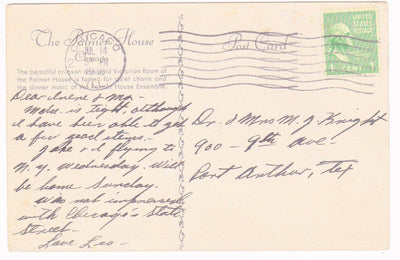 The Palmer House
Chicago
Post Card
CHICAGO
JUL 14
The beautiful crimson and gold Victorian Room of
the Palmer House is famed for quiet charm and
the dinner music of the Palmer House Ensemble.
1 CENT 1
Dear Irene & Mo -
Mdse. is tight although
I have been able to get
a few good items.
Jake & I flying to
N.Y. Wednesday. Will
be home Sunday.
Was not impressed
with Chicago's State
Street -
Love Leo -
Dr. & Mrs M. J. Knight
900 - 9th Ave -
Port Arthur, Tex